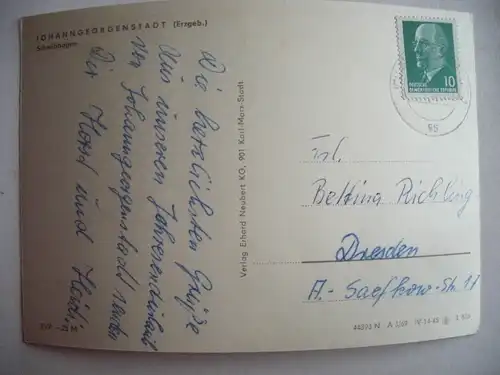 JOHANNGEORGENSTADT (Erzgeb.)
Die herzlichsten Grüße
aus unserem
von Johanngeorgenstadt senden
Dir Horst und Heidi
Verlag Erhard Neubert KG, 901 Karl-Marx-Stadt
10
DEUTSCHE
DEMOKRATISCHE REPUBLIK
95
Frl.
Bettina Richling
Dresden
A.-Saefkow-Str. 17